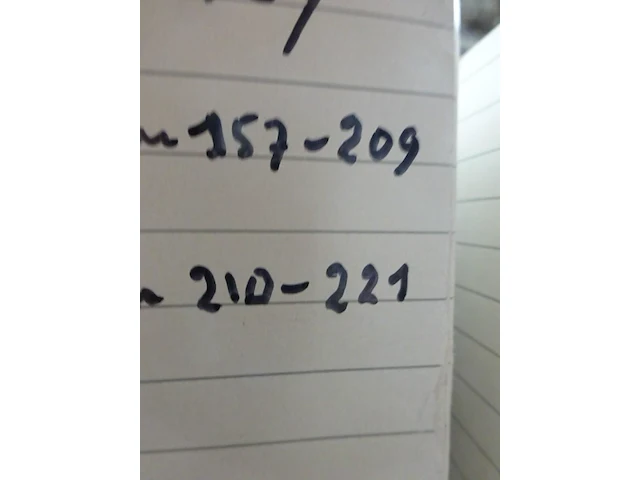 157-209
210-221